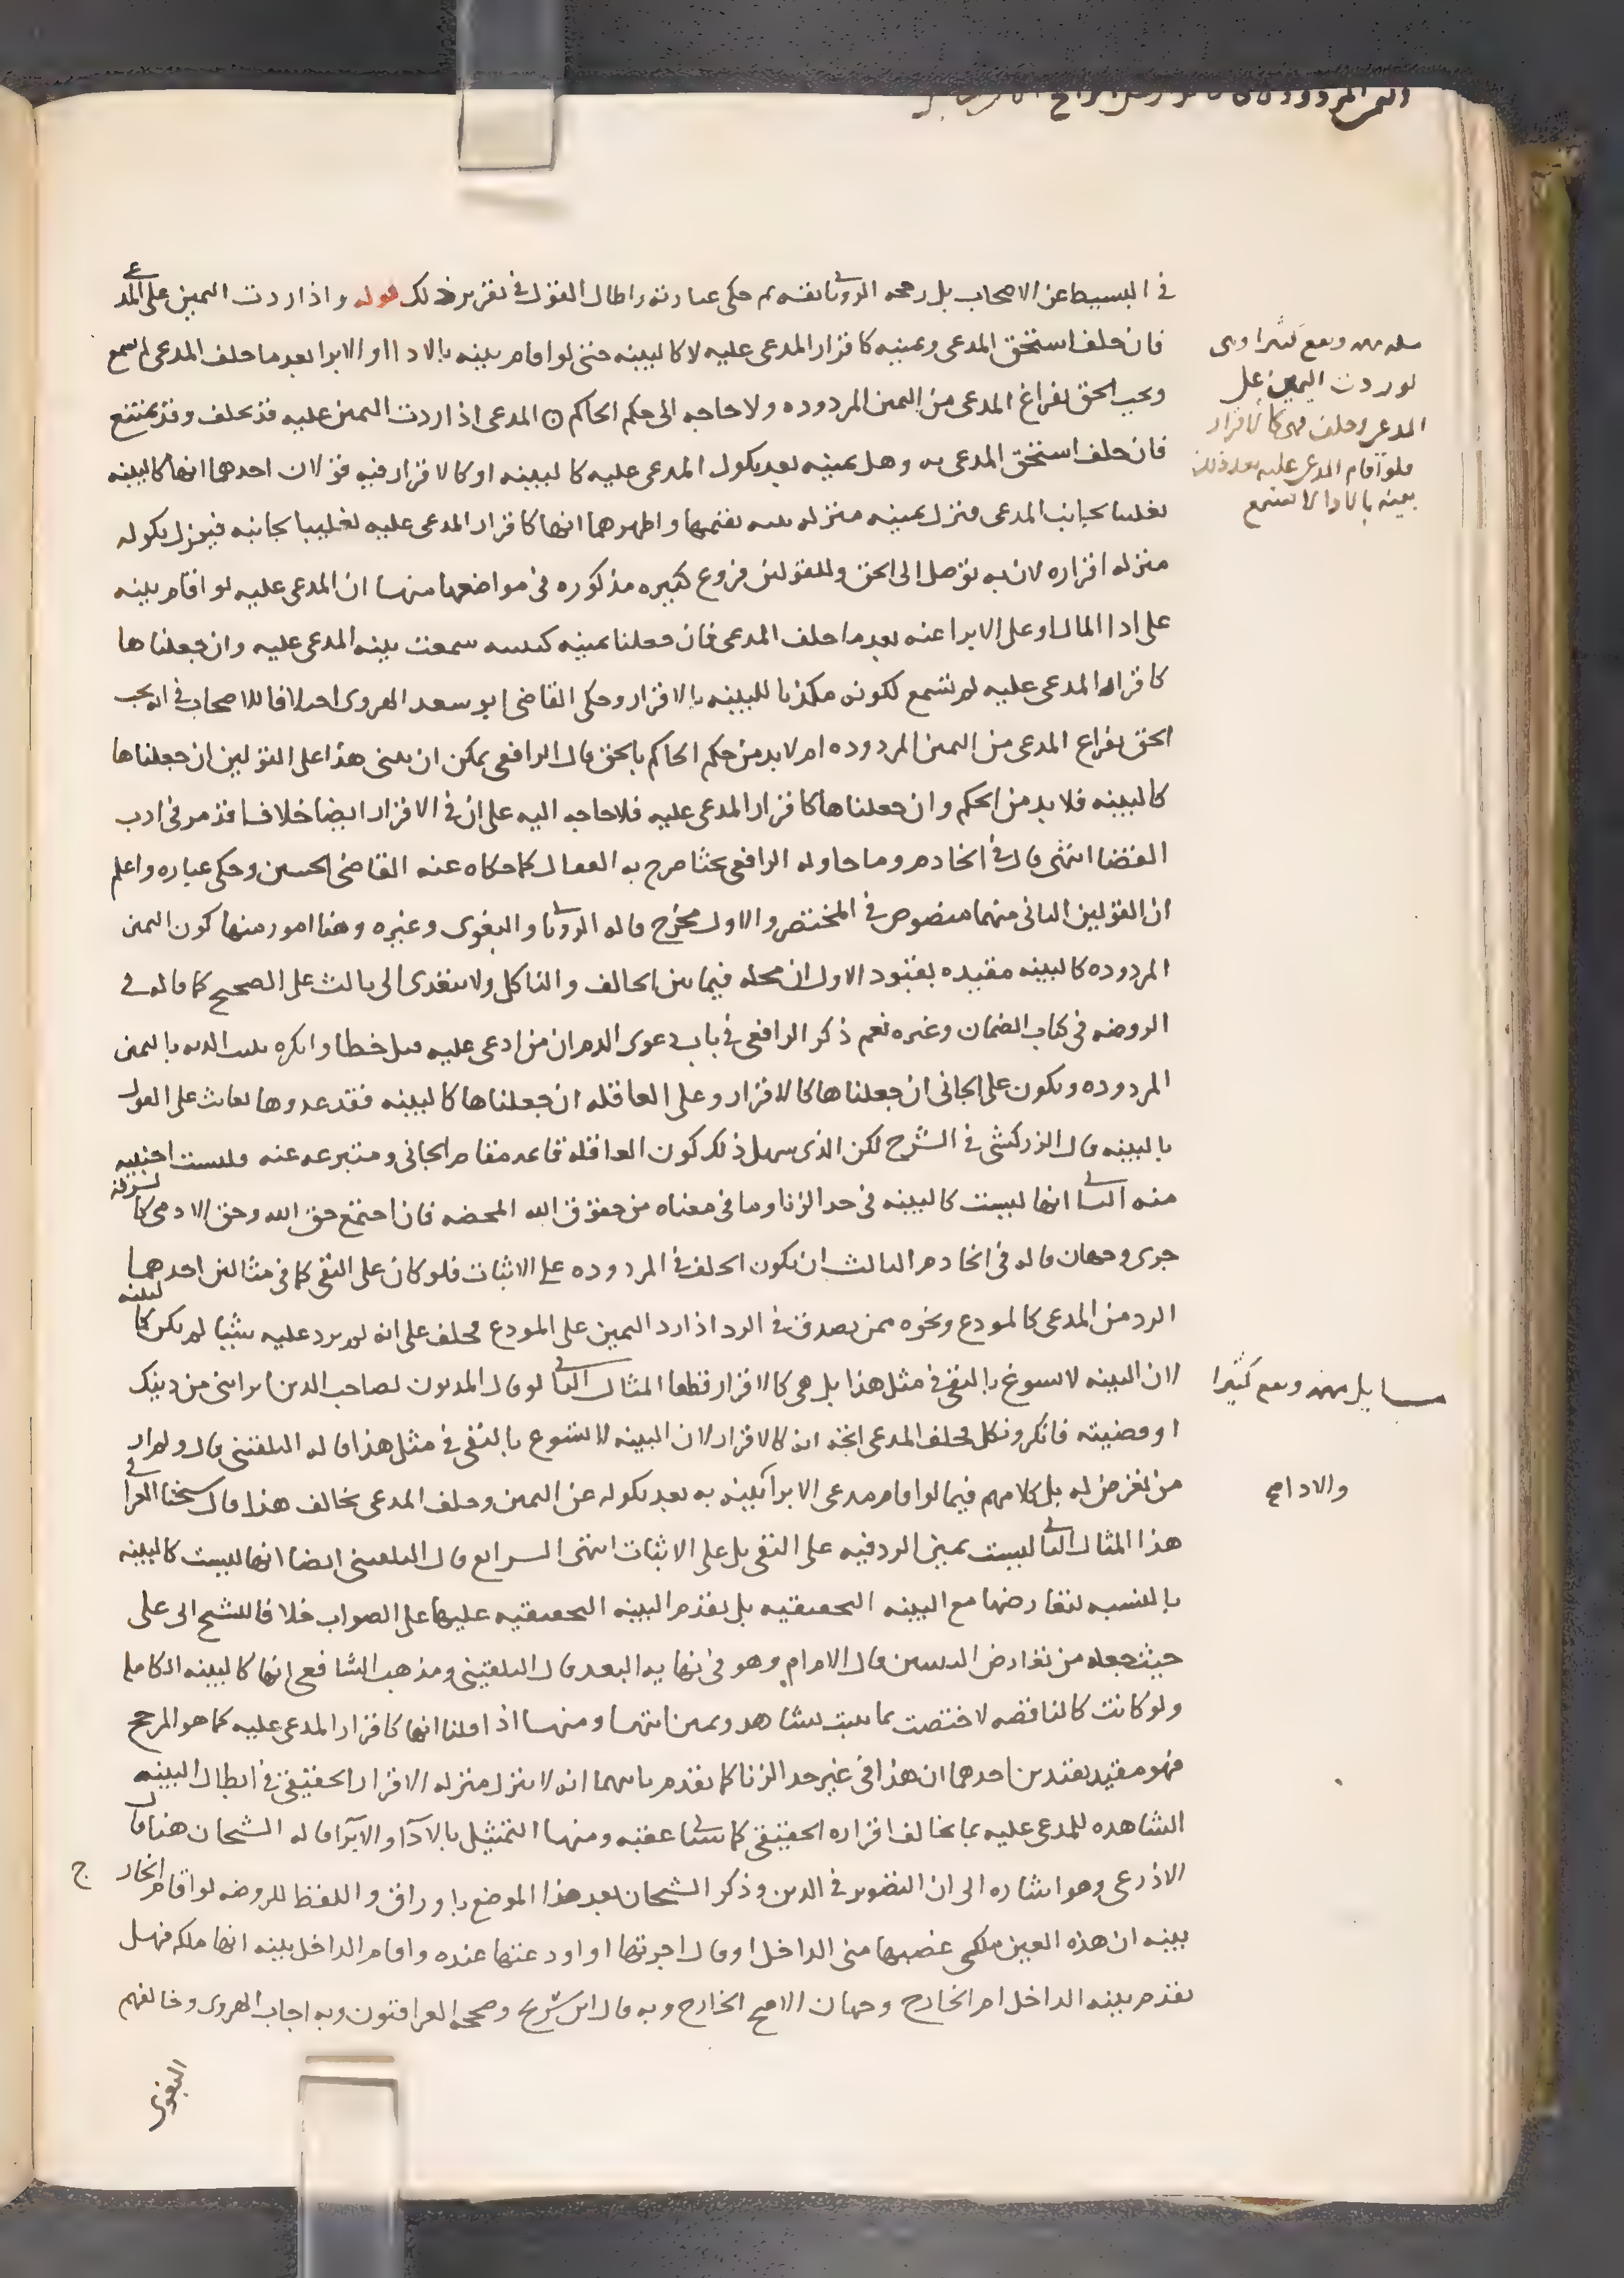 في البسيط عن الاصحاب بل رجحه الروياني نفسه ثم حكى عبارته واطال القول في تقرير ذلك قوله واذا ردت اليمين على المدعي
فان حلف استحق المدعى ويمينه كاقرار المدعى عليه لا كالبينه حتى لو اقام بينه بالادا او الابرا بعد ما حلف المدعى لم تسمع
ويجب الحق بفراغ المدعى من اليمين المردوده ولا حاجه الى حكم الحاكم ۞ المدعى اذا ردت اليمين عليه قد يحلف وقد يمتنع
فان حلف استحق المدعى به وهل يمينه بعد نكول المدعى عليه كالبينه او كالاقرار فيه قولان احدهما انها كالبينه
تغليبا لجانب المدعى فتنزل يمينه منزله بينه يقيمها واظهرهما انها كاقرار المدعى عليه تغليبا لجانبه فينزل نكوله
منزله اقراره لان به توصل الى الحق وللقولين فروع كثيره مذكوره في مواضعها منها ان المدعى عليه لو اقام بينه
على ادا المال او على الابرا عنه بعد ما حلف المدعى فان جعلنا يمينه كبينه سمعت بينه المدعى عليه وان جعلناها
كاقرار المدعى عليه لم تسمع لكونه مكذبا للبينه بالاقرار وحكى القاضي ابو سعد الهروى اختلافا للاصحاب في انه يجب
الحق بفراغ المدعى من اليمين المردوده ام لا بد من حكم الحاكم بالحق قال الرافعى يمكن ان يبنى هذا على القولين ان جعلناها
كالبينه فلا بد من الحكم وان جعلناها كاقرار المدعى عليه فلا حاجه اليه على ان في الاقرار ايضا خلافا قد مر في ادب
القضا انتهى قال في الخادم وما حاوله الرافعى بحثا صرح به القفال كما حكاه عنه القاضى الحسين وحكى عباره واعلم
ان القولين الثاني منهما منصوص في المختصر والاول مخرج قاله الروياني والبغوى وغيره وهنا امور منها كون اليمين
المردوده كالبينه مقيده بقيود الاول ان محله فيما بين الحالف والناكل ولا يتعدى الى ثالث على الصحيح كما قاله في
الروضه في كتاب الضمان وغيره نعم ذكر الرافعى في باب دعوى الدم ان من ادعى عليه قتل خطا وانكره ثبتت الديه باليمين
المردوده وتكون على الجاني ان جعلناها كالاقرار وعلى العاقله ان جعلناها كالبينه فقد عدوها لثالث على القول
بالبينه قال الزركشى في الشرح لكن الذى سهل ذلك كون العاقله قائمه مقام الجانى ومتبرعه عنه وليست اجنبيه
منه الثاني انها ليست كالبينه في حد الزنا وما في معناه من حقوق الله المحضه فان اجتمع حق الله وحق الادمى كالسرقه
جرى وجهان قاله في الخادم الثالث ان يكون الحلف في المردوده على الاثبات فلو كان على النفى كما في مثالين احدهما
الرد من المدعى كالمودع ونحوه ممن يصدق في الرد اذا رد اليمين على المودع فحلف على انه لم يرد عليه شيئا لم تكن كالبينه
لان البينه لا تسوغ بالنفى في مثل هذا بل هى كالاقرار قطعا المثال الثاني لو قال المديون لصاحب الدين ابراتنى من دينك
او قضيته فانكر ونكل فحلف المدعى اتجه انه كالاقرار لان البينه لا تسوغ بالنفى في مثل هذا قاله البلقينى قال ولم ار
من تعرض له بل كلامهم فيما لو اقام مدعى الابرا بينه به بعد نكوله عن اليمين وحلف المدعى يخالف هذا قال شيخنا العراقي
هذا المثال الثاني ليست يمين الرد فيه على النفى بل على الاثبات انتهى الرابع قال البلقينى ايضا انها ليست كالبينه
بالنسبه لتعارضها مع البينه الحقيقيه بل تقدم البينه الحقيقيه عليها على الصواب خلافا للشيخ ابى على
حيث جعله من تعارض البينتين قال الامام وهو في نهايه البعد قال البلقينى ومذهب الشافعى انها كالبينه الكامله
ولو كانت كالناقصه لاختصت بما يثبت بشاهد ويمين انتهى ومنها اذا قلنا انها كاقرار المدعى عليه كما هو المرجح
فهو مقيد بقيدين احدهما ان هذا في غير حد الزنا كما تقدم ثانيهما انه لا ينزل منزله الاقرار الحقيقى في ابطال البينه
الشاهده للمدعى عليه بما يخالف اقراره الحقيقى كما سياتي عقبه ومنها التمثيل بالادآ او الابرآ قاله الشيخان هنا قال
الاذرعى وهو اشاره الى ان التصوير في الدين وذكر الشيخان بعد هذا الموضع باوراق واللفظ للروضه لو اقام الخارج
بينه ان هذه العين ملكى غصبها منى الداخل او قال اجرتها او اودعتها عنده واقام الداخل بينه انها ملكه فهل
تقدم بينه الداخل ام الخارج وجهان الاصح الخارج وبه قال ابن شريح وصححه العراقيون وبه اجاب الهروى وخالفهم
البغوى
مسله مهمه وتقع كثيرا وهى
لو ردت اليمين على
المدعى وحلف فهى كالاقرار
فلو اقام المدعى عليه بعد ذلك
بينه بالادا لا تسمع
مسايل مهمه وتقع كثيرا